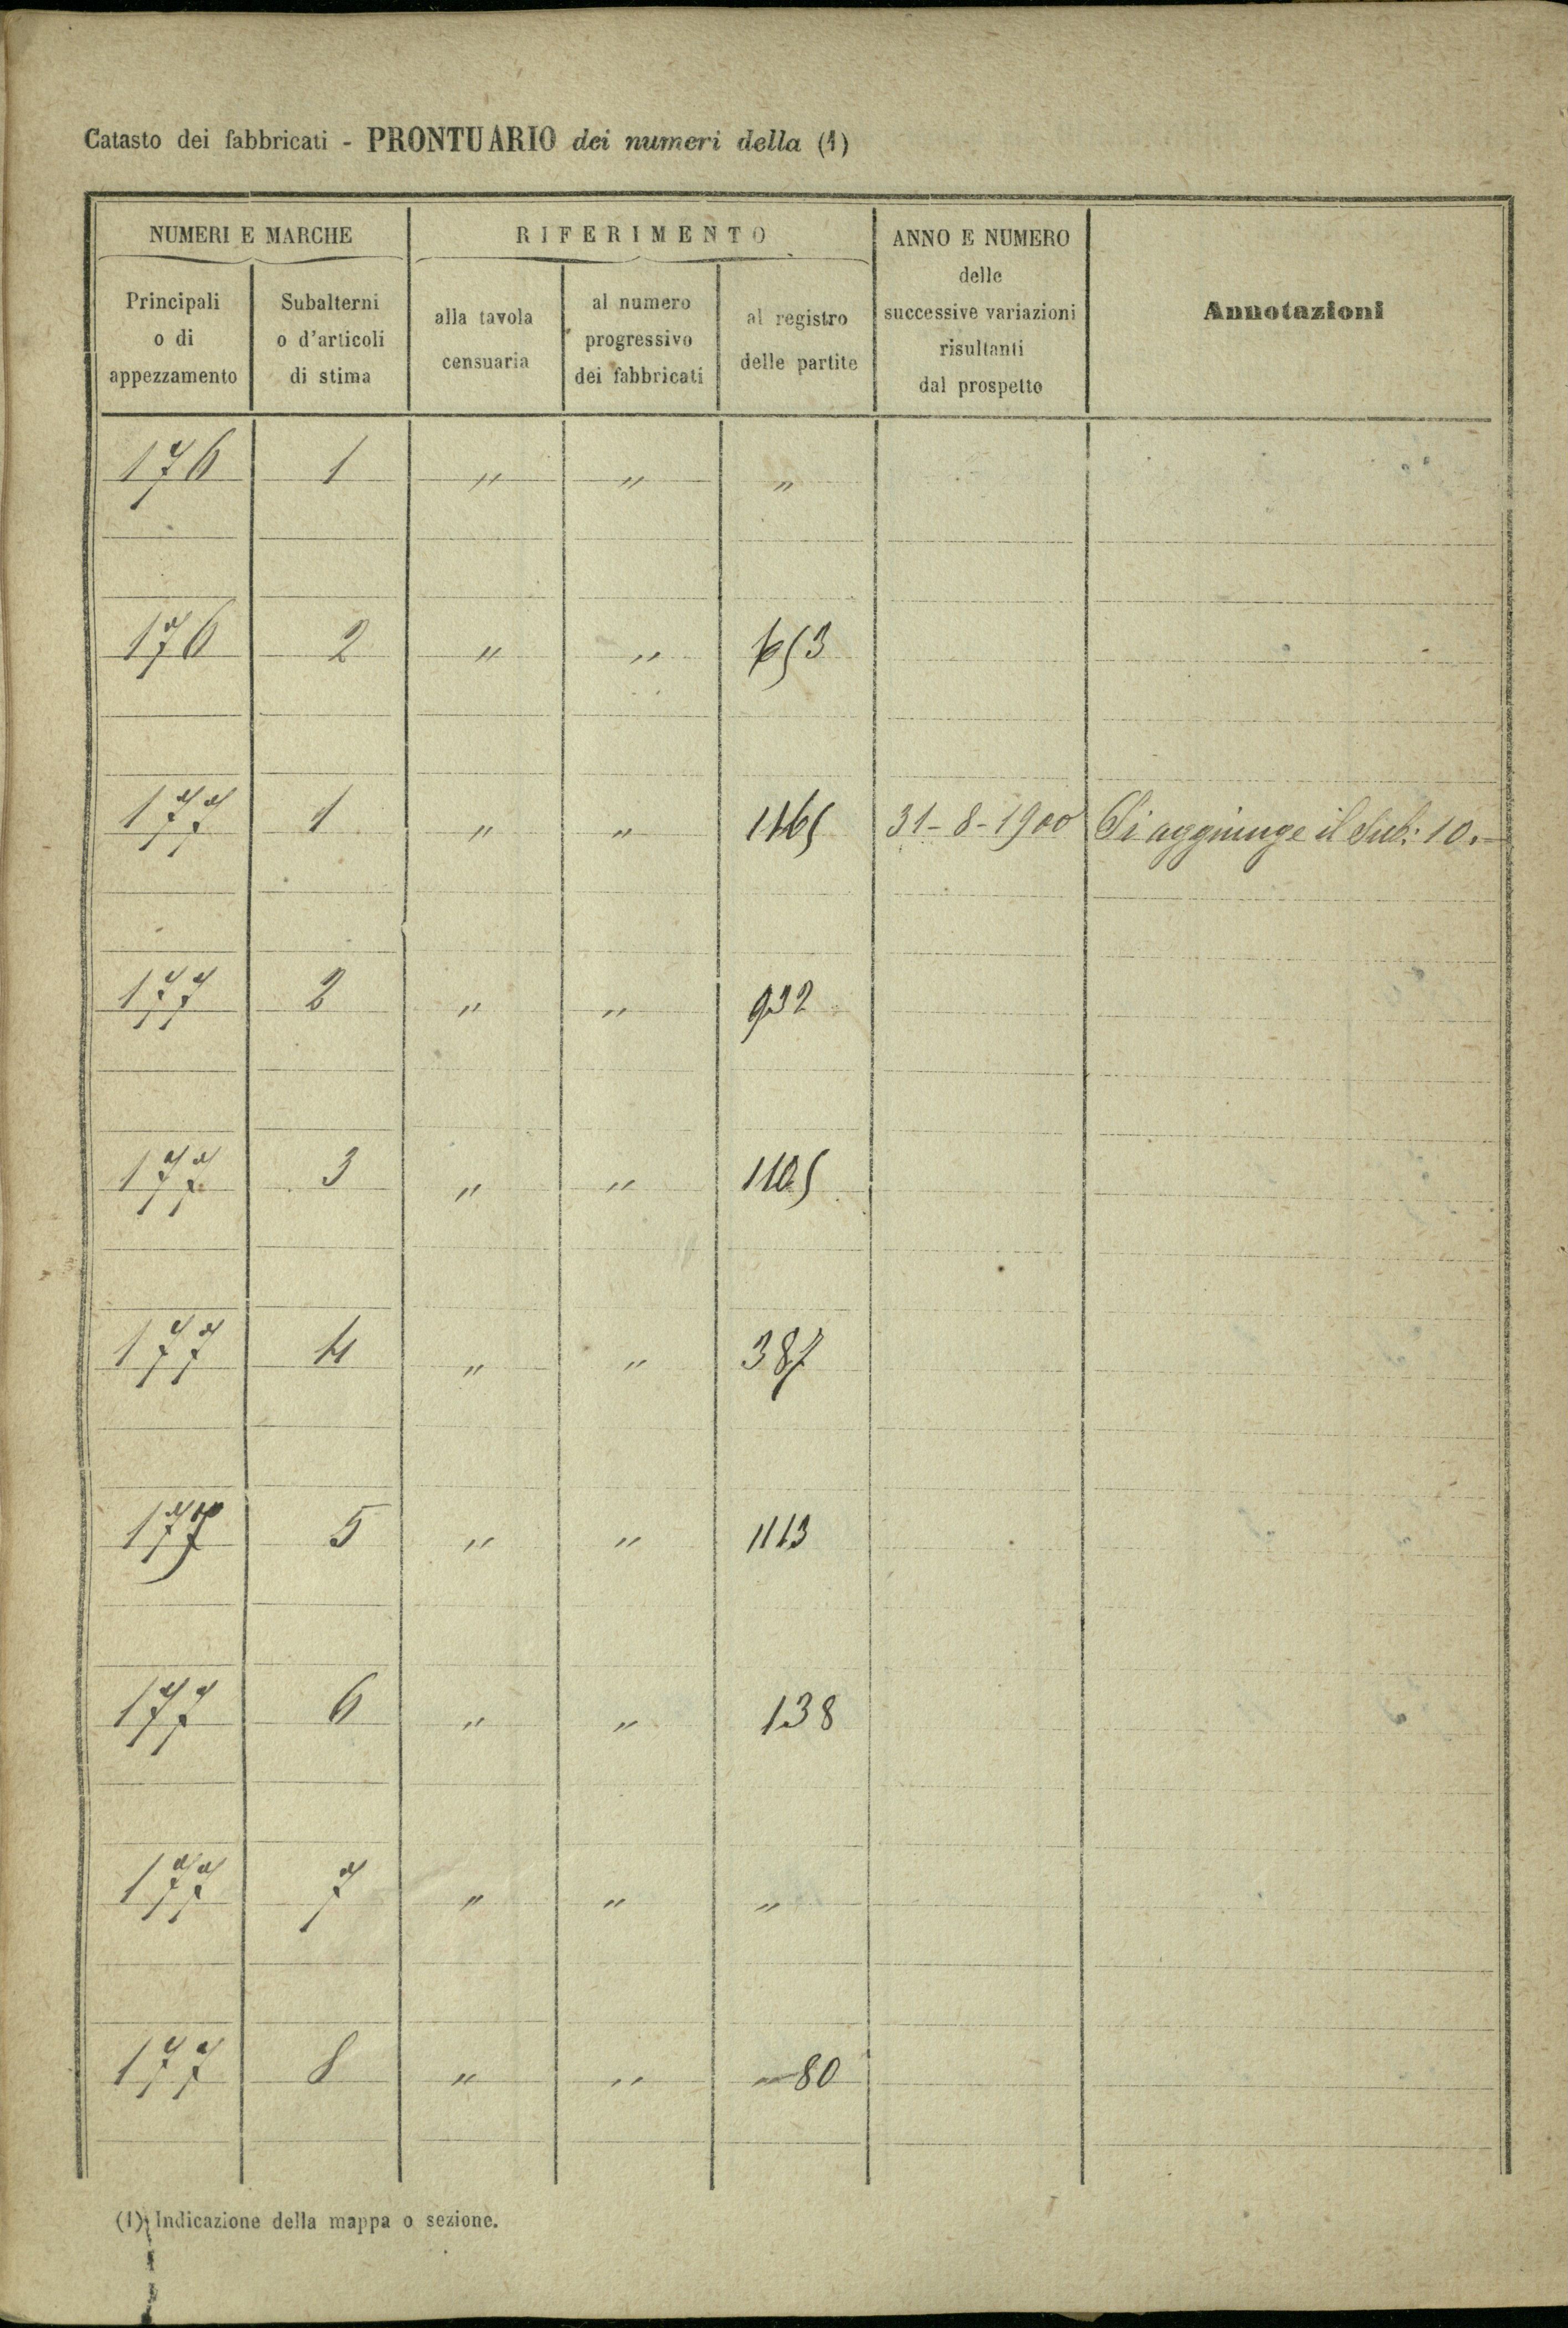 Catasto dei fabbricati - PRONTUARIO dei numeri della (1)
NUMERI E MARCHE RIFERIMENTO ANNO E NUMERO delle successive variazioni risultanti dal prospetto Annotazioni
Principali o di appezzamento Subalterni o d'articoli di stima alla tavola censuaria al numero progressivo dei fabbricati al registro delle partite
176 1 " " "
176 2 " " 653
177 1 " " 1165 31-8-1900 Si aggiunge il Sub: 10.-
177 2 " " 932
177 3 " " 1105
177 4 " " 387
177 5 " " 1113
177 6 " " 138
177 7 " " "
177 8 " " 80
(1) Indicazione della mappa o sezione.